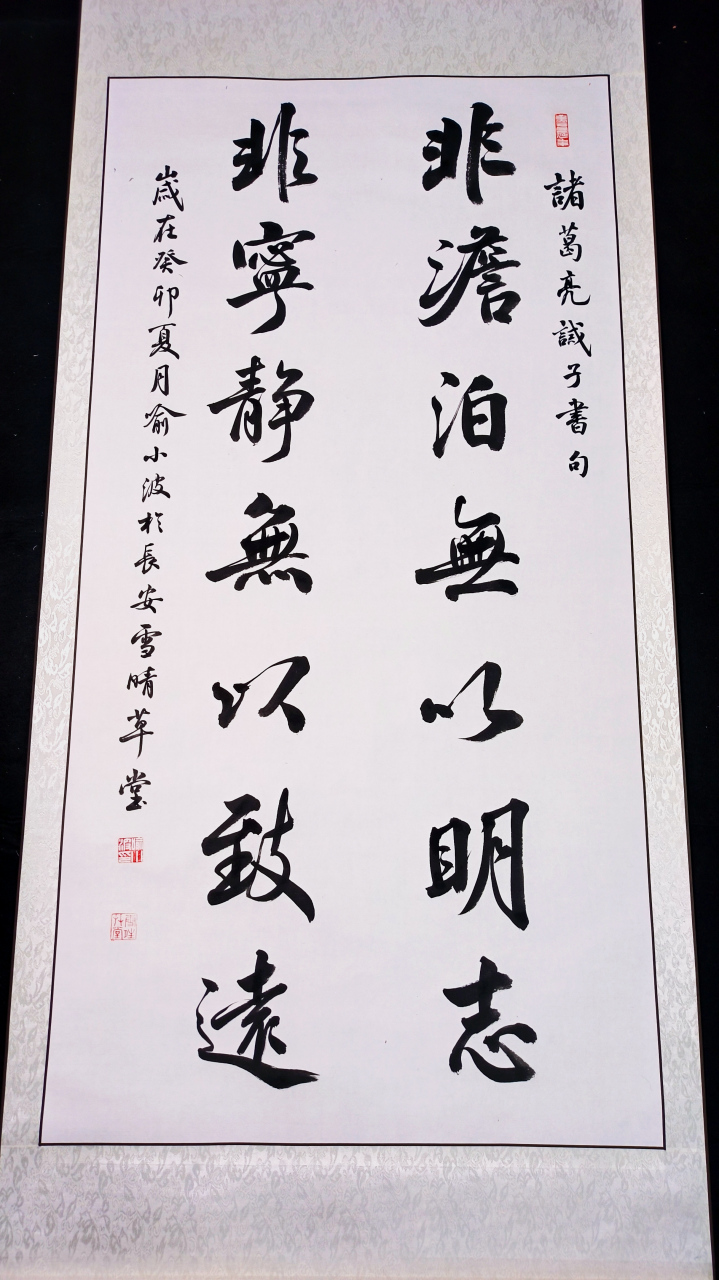 諸葛亮誡子書句
非澹泊無以明志
非寧靜無以致遠
歲在癸卯夏月喻小波於長安雪晴草堂